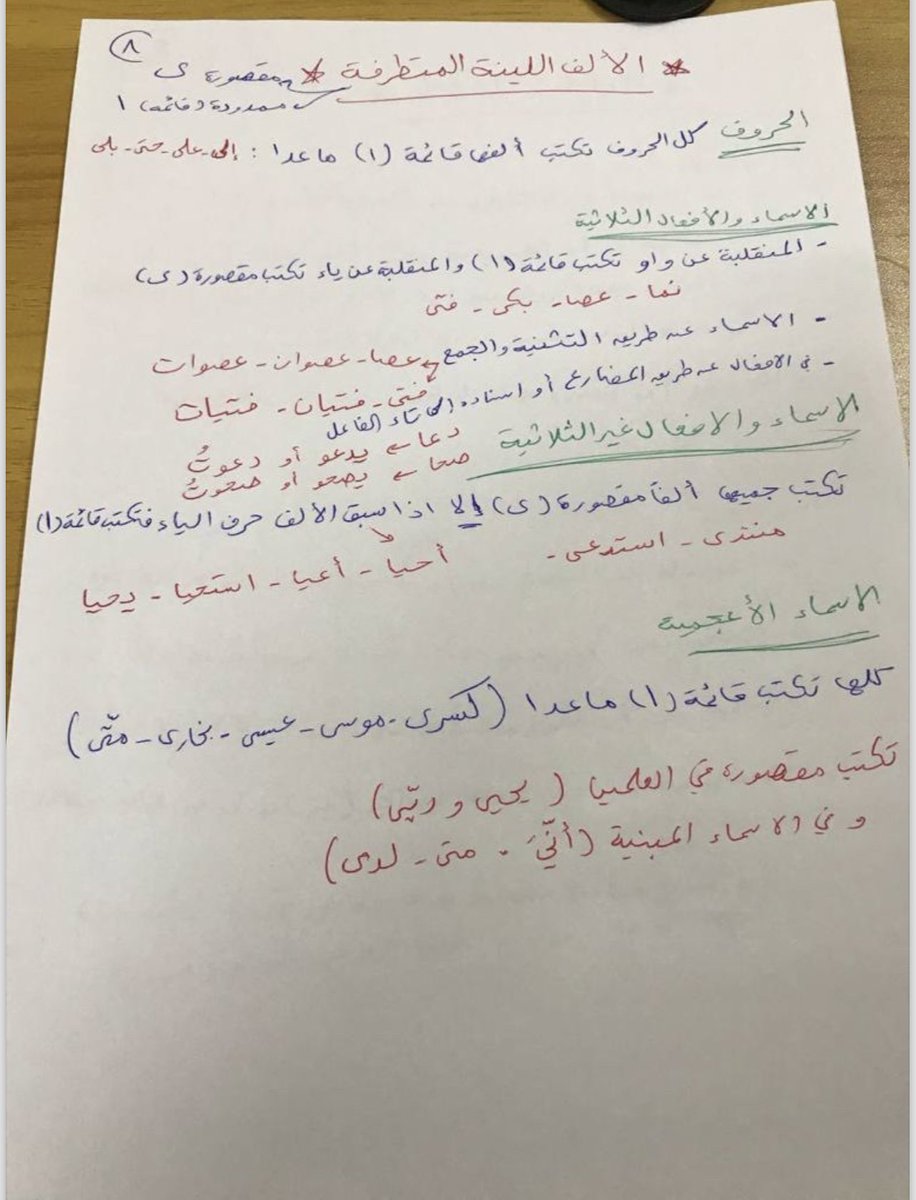 ٨
* الألف اللينة المتطرفة * مقصورة ى
ممدودة (قائمة) ا
الحروف كل الحروف تكتب ألفها قائمة (ا) ما عدا : إلى - على - حتى - بلى
الاسماء والأفعال الثلاثية
- المنقلبة عن واو تكتب قائمة (ا) والمنقلبة عن ياء تكتب مقصورة (ى)
نما - عصا - بكى - فتى
- الاسماء عن طريق التثنية والجمع عصا - عصوان - عصوات
فتى - فتيان - فتيات
- في الافعال عن طريق المضارع أو اسناده إلى تاء الفاعل
دعا يدعو أو دعوتُ
صحا يصحو أو صحوتُ
الاسماء والافعال غير الثلاثية
تكتب جميعها ألفاً مقصورة (ى) إلا اذا سبق الألف حرف الياء فتكتب قائمة (ا)
منتدى - استدعى -
أحيا - أعيا - استحيا - يحيا
الاسماء الأعجمية
كلها تكتب قائمة (ا) ما عدا (كسرى - موسى - عيسى - بخارى - متّى)
تكتب مقصورة في العلميا (يحيى و ريّى)
و في الاسماء المبنية (أنّىَ - متى - لدى)